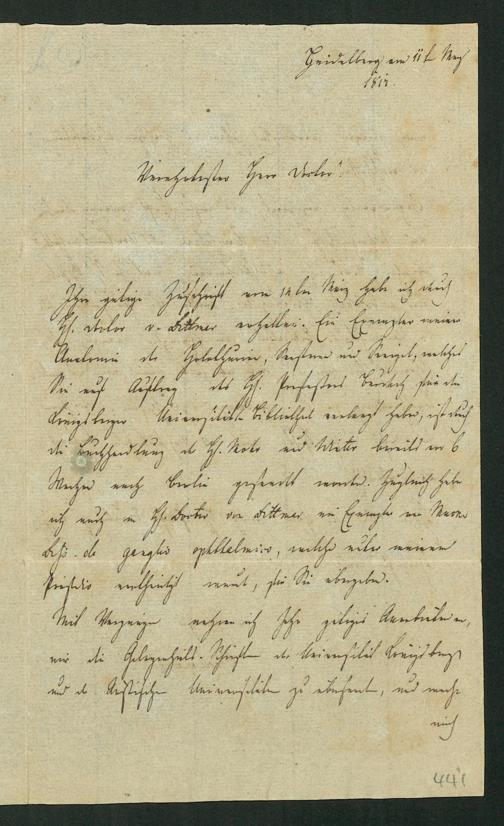 Heidelberg am 11t May
181
Verehrtester Herr Doctor!
Ihre gütige Zuschrift vom 14ten März habe ich durch
H. Doctor v. Dittmer erhalten. Ein Exemplar meiner
Anatomie der Holothurien, Seesterne und Seeigel, welches
Sie auf Auftrag des H. Professors Burdach für die
Königsberger Universitäts Bibliothek verlangt haben, ist durch
die Buchhandlung des H. Mohr und Winter bereits vor 6
Wochen nach Berlin gesendet worden. Zugleich habe
ich auch an H. Doctor von Dittmer ein Exemplar
de ganglio ophthalmico, welche unter meinem
Praesidio vertheidigt wurde, für Sie übergeben.
Mit Vergnügen nehme ich Ihr gütiges Anerbieten an,
mir die Gelegenheits-Schriften der Universität Königsberg
und der Universitäten zu übersenden, und mache
mich
441